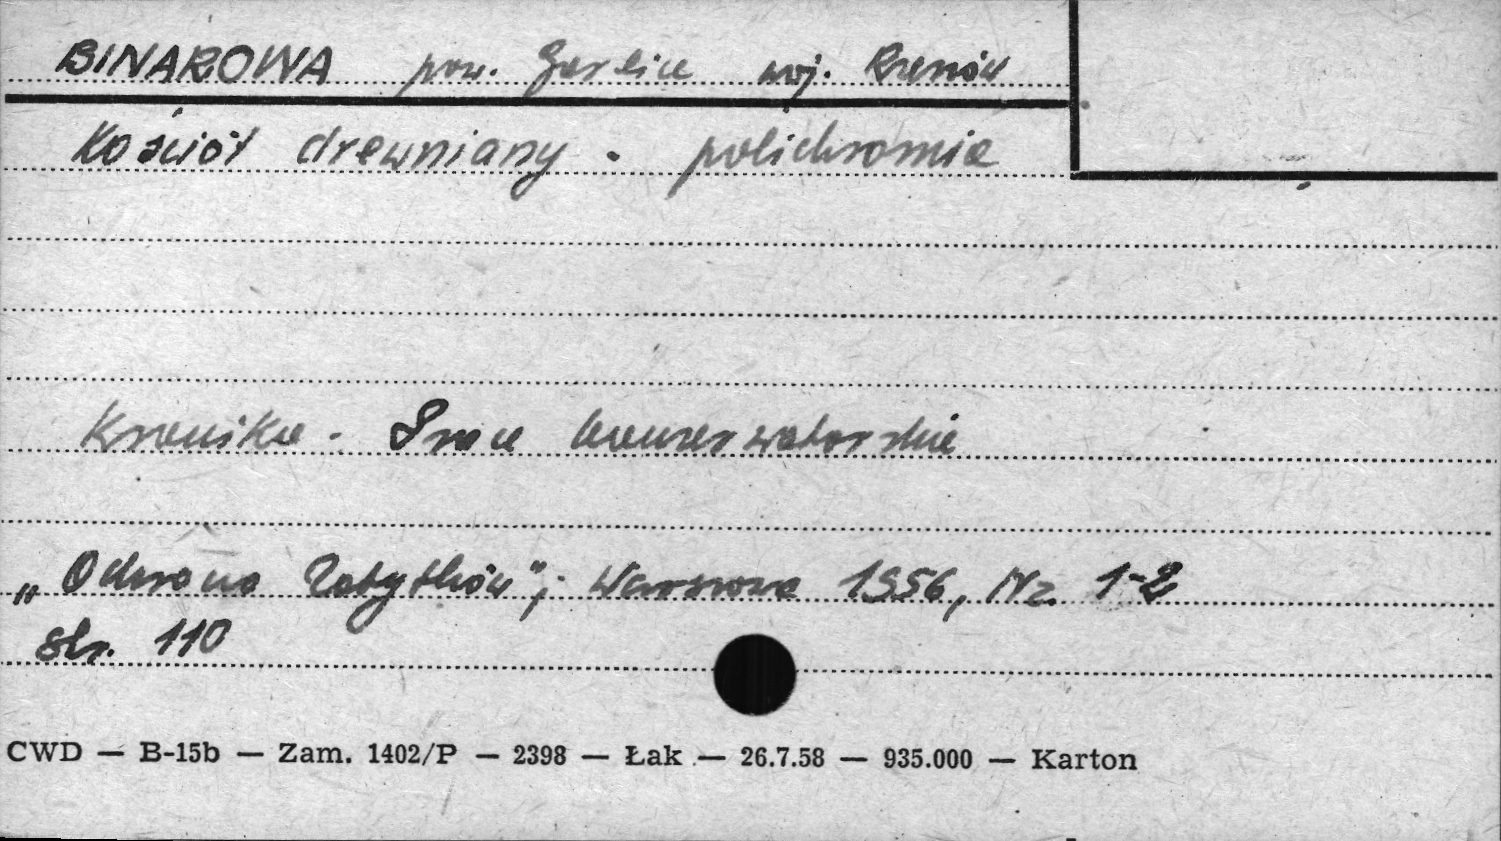 BINAROWA pow. Gorlice woj. Rzeszów
Kościół drewniany. polichromie
Kronika. Prace konserwatorskie
„Ochrona Zabytków”; Warszawa 1956, Nr. 1-2
str. 110
CWD — B-15b — Zam. 1402/P — 2398 — Łak — 26.7.58 — 935.000 — Karton